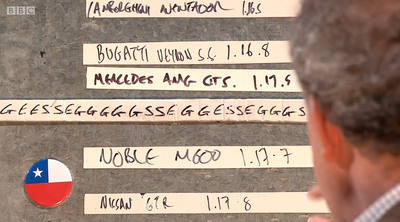 BBC
LAMBORGHINI AVENTADOR 1.16.5
BUGATTI VEYRON S.S. 1.16.8
MERCEDES AMG GTS. 1.17.5
GEESSEGGGGGSSEGGESSEGGGS
NOBLE M600 1.17.7
NISSAN GTR 1.17.8